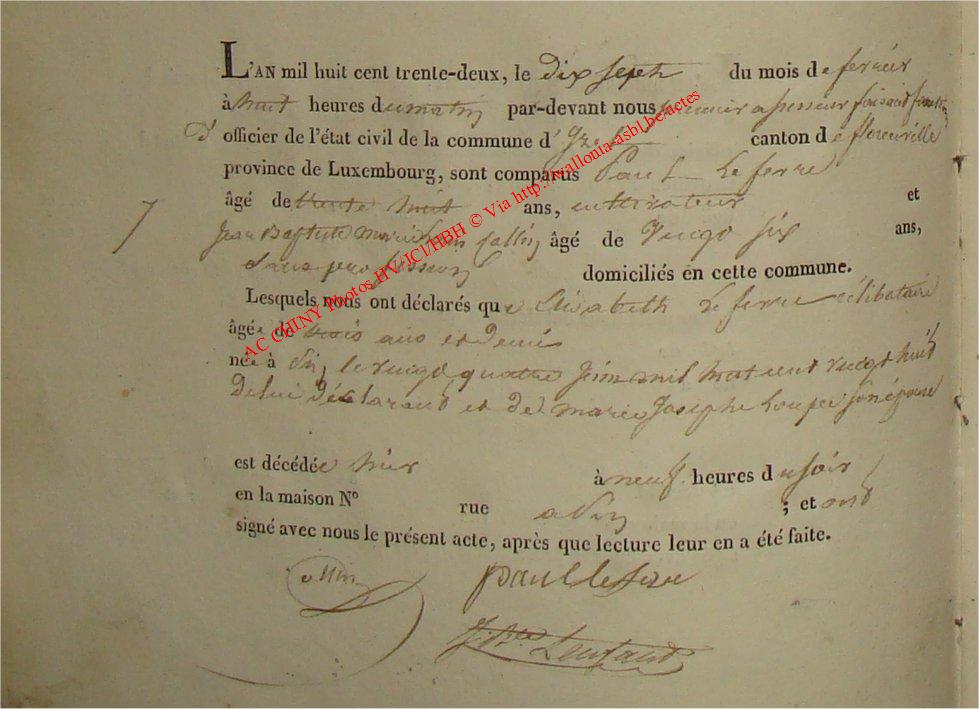 L'AN mil huit cent trente-deux, le dix sept du mois de fevrier
à huit heures du matin par-devant nous premier assesseur faisant fonction
D' officier de l'état civil de la commune d'Izel canton de florenville
province de Luxembourg, sont comparus Paul Lefevre
âgé de trente huit ans, cultivateur et
7 Jean Baptiste Collin âgé de vingt six ans,
Sans profession domiciliés en cette commune.
Lesquels nous ont déclarés que Elisabeth Lefevre célibataire
âgée de trois ans et demis
née à le vingt quatre mil huit cent vingt huit
De lui déclarant et de marie Josephe son épouse
est décédée hier à neuf heures du soir
en la maison N° rue ; et ont
signé avec nous le présent acte, après que lecture leur en a été faite.
collin paul lefevre
AC CHINY Photos HV/JCI/HBH © Via http://wallonia-asbl.be/actes